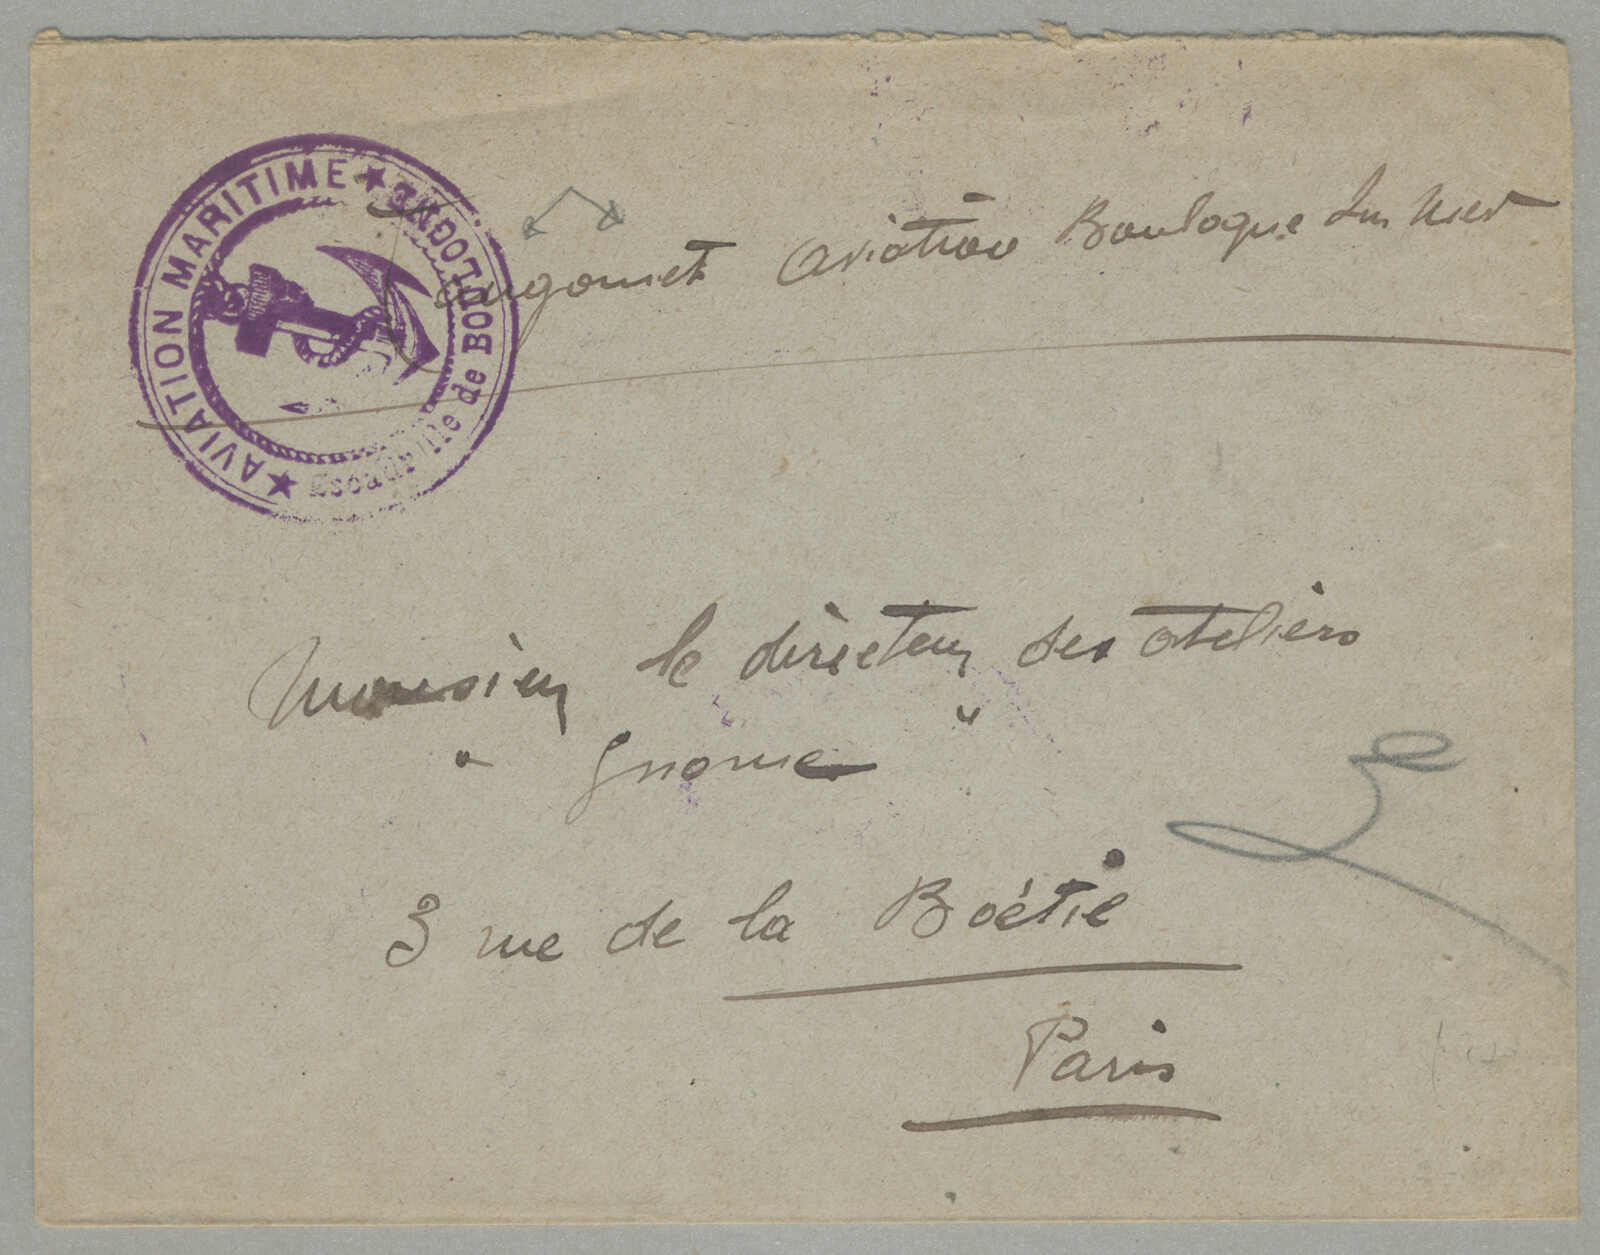 ★ AVIATION MARITIME ★
Escadrille de BOULOGNE
Aviation Boulogne sur Mer
Monsieur le directeur des ateliers
" Gnome "
3 rue de la Boétie
Paris